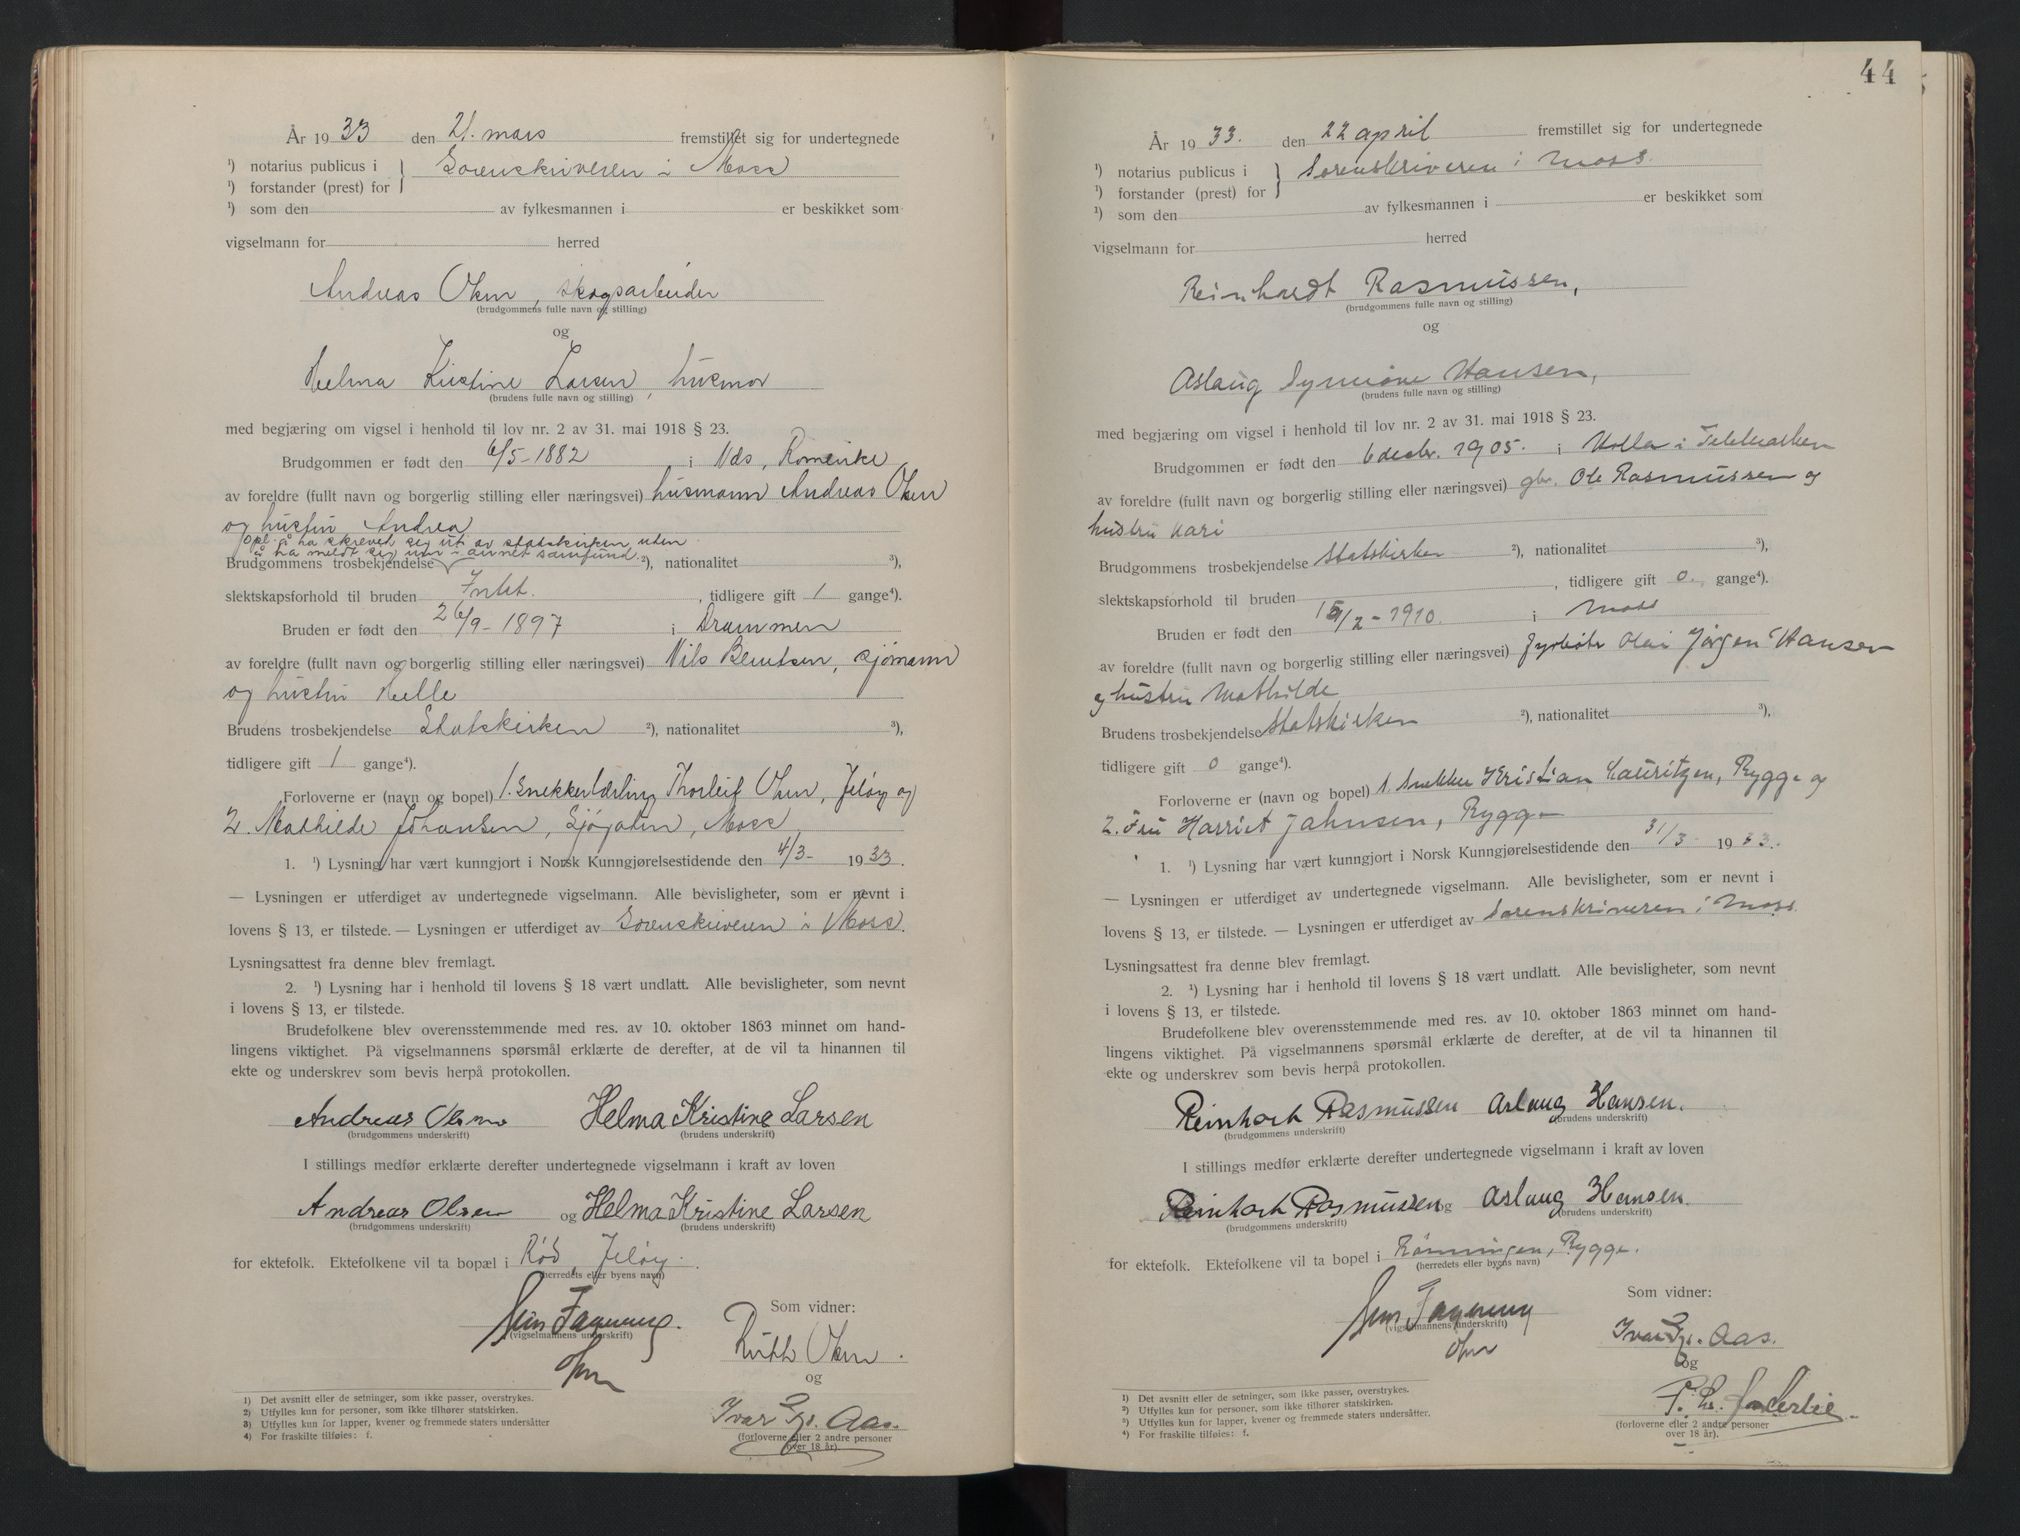 År 1933 den 21. mars fremstillet sig for undertegnede
¹) notarius publicus i } Sorenskriveren i Moss
¹) forstander (prest) for
¹) som den av fylkesmannen i er beskikket som
vigselmann for herred
Andreas Olsen, skogsarbeider
(brudgommens fulle navn og stilling)
og
Helma Kristine Larsen, husmor
(brudens fulle navn og stilling)
med begjæring om vigsel i henhold til lov nr. 2 av 31. mai 1918 § 23.
Brudgommen er født den 6/5-1882 i Nds, Romerike
av foreldre (fullt navn og borgerlig stilling eller næringsvei) husmann Andreas Olsen
og hustru Andrea
opl. å ha skrevet sig ut av statskirken uten
å ha meldt sig inn i annet samfund.
Brudgommens trosbekjendelse ²), nationalitet ³),
slektskapsforhold til bruden Intet. , tidligere gift 1 gange⁴).
Bruden er født den 26/9-1897 i Drammen
av foreldre (fullt navn og borgerlig stilling eller næringsvei) Nils Berntsen, sjømann
og hustru Helle
Brudens trosbekjendelse Statskirken ²), nationalitet ³),
tidligere gift 1 gange⁴).
Forloverne er (navn og bopel) 1. Snekkerlærling Thorleif Olsen, Jeløy og
2. Mathilde Johansen, Sjøgaten, Moss
1. ¹) Lysning har vært kunngjort i Norsk Kunngjørelsestidende den 4/3- 1933.
— Lysningen er utferdiget av undertegnede vigselmann. Alle bevisligheter, som er nevnt i
lovens § 13, er tilstede. — Lysningen er utferdiget av Sorenskriveren i Moss.
Lysningsattest fra denne blev fremlagt.
2. ¹) Lysning har i henhold til lovens § 18 vært undlatt. Alle bevisligheter, som nevnt
i lovens § 13, er tilstede.
Brudefolkene blev overensstemmende med res. av 10. oktober 1863 minnet om hand-
lingens viktighet. På vigselmannens spørsmål erklærte de derefter, at de vil ta hinannen til
ekte og underskrev som bevis herpå protokollen.
Andreas Olsen Helma Kristine Larsen
(brudgommens underskrift) (brudens underskrift)
I stillings medfør erklærte derefter undertegnede vigselmann i kraft av loven
Andreas Olsen og Helma Kristine Larsen
(brudgommens underskrift) (brudens underskrift)
for ektefolk. Ektefolkene vil ta bopæl i Rød, Jeløy.
(herredets eller byens navn)
Som vidner:
(vigselmannens underskrift)
Ruth Olsen.
og
Ivar Aas.
(forloverne eller 2 andre personer
over 18 år).
1) Det avsnitt eller de setninger, som ikke passer, overstrykes.
2) Utfylles kun for personer, som ikke tilhører statskirken.
3) Utfylles kun for lapper, kvener og fremmede staters undersåtter
4) For fraskilte tilføies: f.
44
År 1933. den 22 april fremstillet sig for undertegnede
¹) notarius publicus i } Sorenskriveren i Moss.
¹) forstander (prest) for
¹) som den av fylkesmannen i er beskikket som
vigselmann for herred
Reinhardt Rasmussen,
(brudgommens fulle navn og stilling)
og
Aslaug Synnøve Hansen,
(brudens fulle navn og stilling)
med begjæring om vigsel i henhold til lov nr. 2 av 31. mai 1918 § 23.
Brudgommen er født den 6 decbr. 1905. i Holla i Telemarken
av foreldre (fullt navn og borgerlig stilling eller næringsvei) gbr. Ole Rasmussen og
hustru Kari
Brudgommens trosbekjendelse Statskirken ²), nationalitet ³),
slektskapsforhold til bruden , tidligere gift 0. gange⁴).
Bruden er født den 15/2-1910. i Moss
av foreldre (fullt navn og borgerlig stilling eller næringsvei) fyrbøter Olai Jørgen Hansen
og hustru Mathilde
Brudens trosbekjendelse Statskirken ²), nationalitet ³),
tidligere gift 0 gange⁴).
Forloverne er (navn og bopel) 1. Snekker Kristian Lauritzen, Rygge og
2. Fru Harriet Jahnsen, Rygge
1. ¹) Lysning har vært kunngjort i Norsk Kunngjørelsestidende den 31/3- 1933.
— Lysningen er utferdiget av undertegnede vigselmann. Alle bevisligheter, som er nevnt i
lovens § 13, er tilstede. — Lysningen er utferdiget av Sorenskriveren i Moss.
Lysningsattest fra denne blev fremlagt.
2. ¹) Lysning har i henhold til lovens § 18 vært undlatt. Alle bevisligheter, som nevnt
i lovens § 13, er tilstede.
Brudefolkene blev overensstemmende med res. av 10. oktober 1863 minnet om hand-
lingens viktighet. På vigselmannens spørsmål erklærte de derefter, at de vil ta hinannen til
ekte og underskrev som bevis herpå protokollen.
Reinhart Rasmussen Aslaug Hansen.
(brudgommens underskrift) (brudens underskrift)
I stillings medfør erklærte derefter undertegnede vigselmann i kraft av loven
Reinhart Rasmussen og Aslaug Hansen.
(brudgommens underskrift) (brudens underskrift)
for ektefolk. Ektefolkene vil ta bopel i Rønningen, Rygge.
(herredets eller byens navn)
Som vidner:
(vigselmannens underskrift)
Ivar Aas.
og
(forloverne eller 2 andre personer
over 18 år).
¹) Det avsnitt eller de setninger, som ikke passer, overstrykes.
²) Utfylles kun for personer, som ikke tilhører statskirken.
³) Utfylles kun for lapper, kvener og fremmede staters undersåtter.
⁴) For fraskilte tilføies: f.